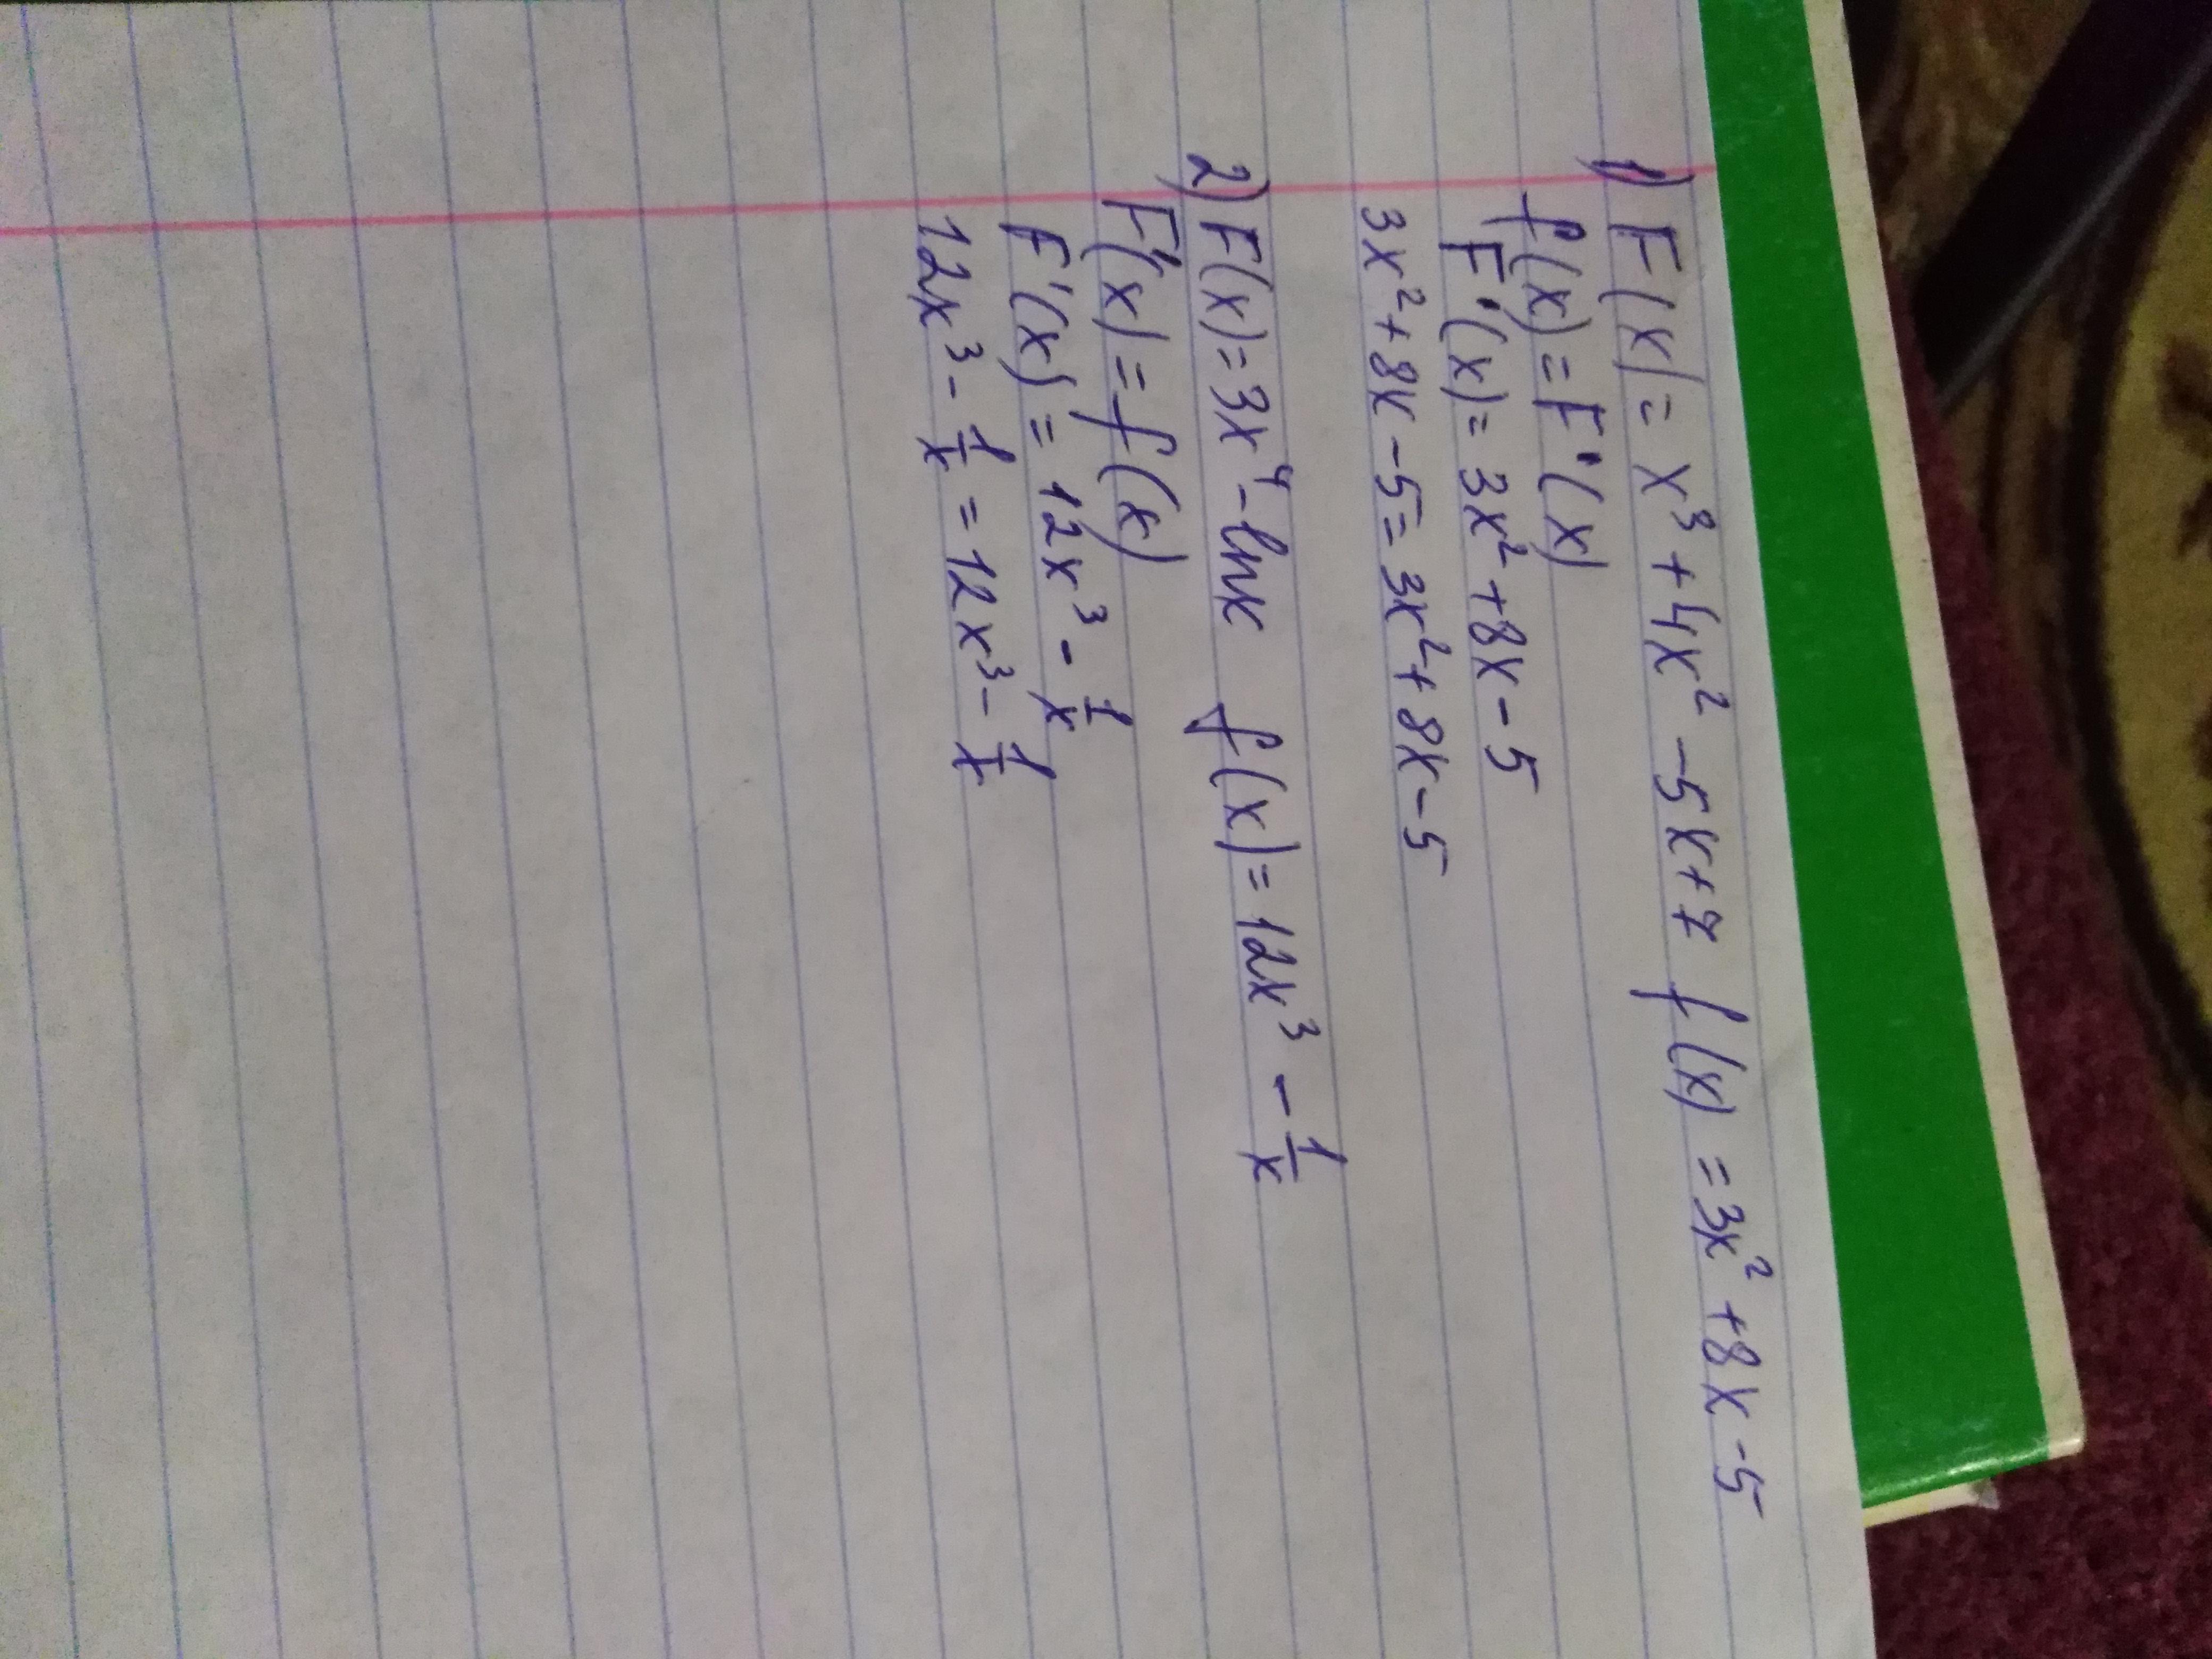 1) F(x) = x³ + 4x² - 5x + 7 f(x) = 3x² + 8x - 5
f(x) = F'(x)
F'(x) = 3x² + 8x - 5
3x² + 8x - 5 = 3x² + 8x - 5
2) F(x) = 3x⁴ - lnx f(x) = 12x³ - 1/x
F'(x) = f(x)
F'(x) = 12x³ - 1/x
12x³ - 1/x = 12x³ - 1/x